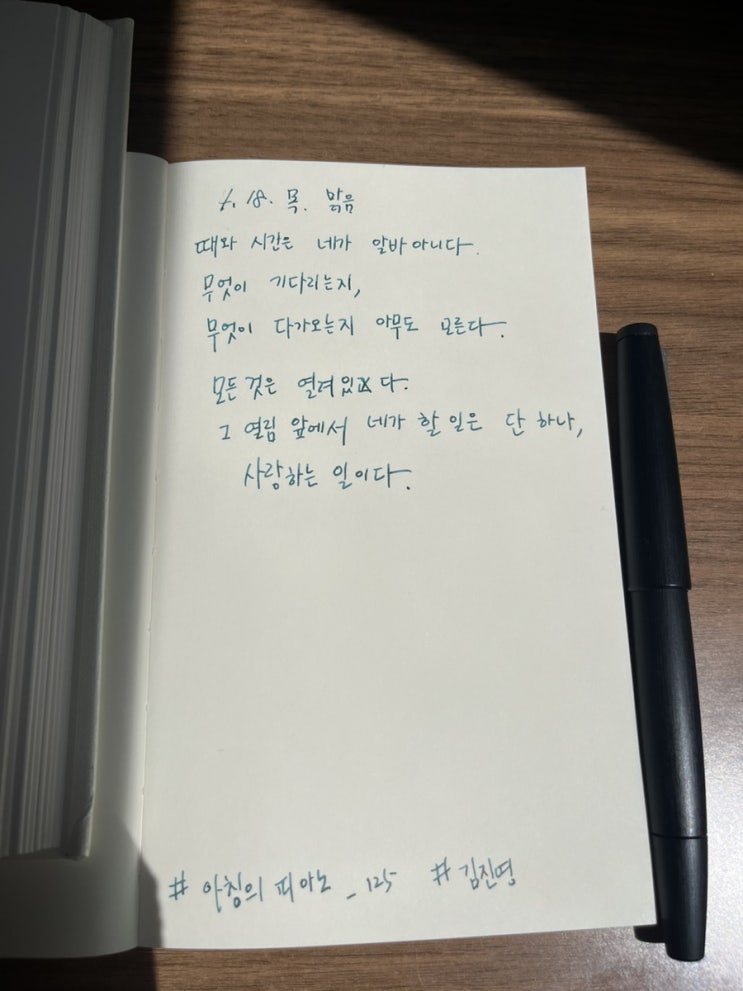 6. 18. 목. 맑음
때와 시간은 네가 알바 아니다.
무엇이 기다리는지,
무엇이 다가오는지 아무도 모른다.
모든 것은 열려있다.
그 열림 앞에서 네가 할 일은 단 하나,
사랑하는 일이다.
# 아침의 피아노 _ 125 # 김진영